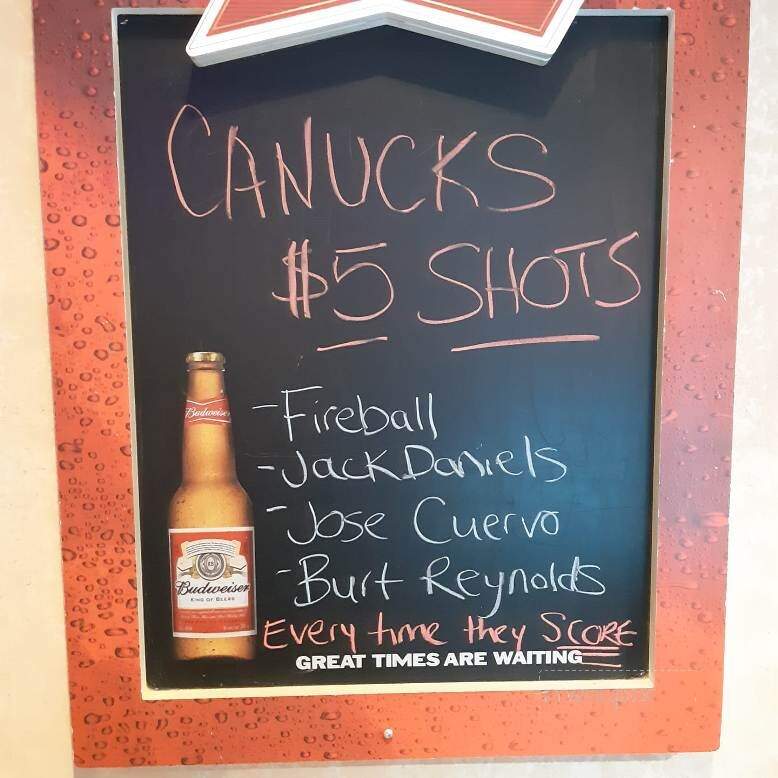 CANUCKS
$5 SHOTS
-Fireball
-Jack Daniels
-Jose Cuervo
-Burt Reynolds
Every time they SCORE
GREAT TIMES ARE WAITING
Budweiser
Budweiser
KING OF BEERS